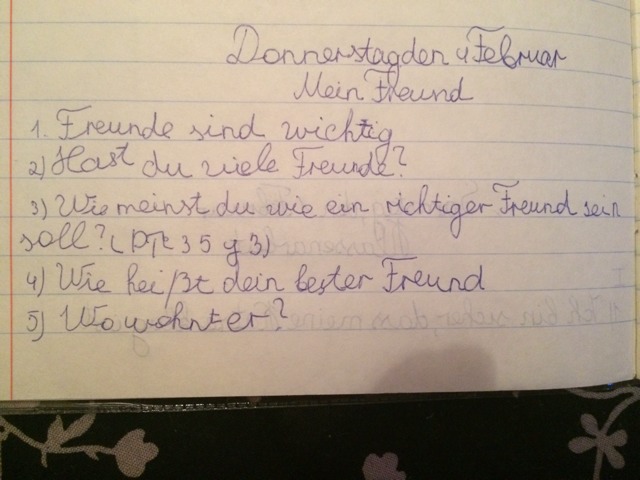 Donnerstag den 4 Februar
Mein Freund
1. Freunde sind wichtig
2) Hast du viele Freunde?
3) Wie meinst du wie ein richtiger Freund sein
soll? ( 35 y 3)
4) Wie heißt dein bester Freund
5) Wo wohnt er?